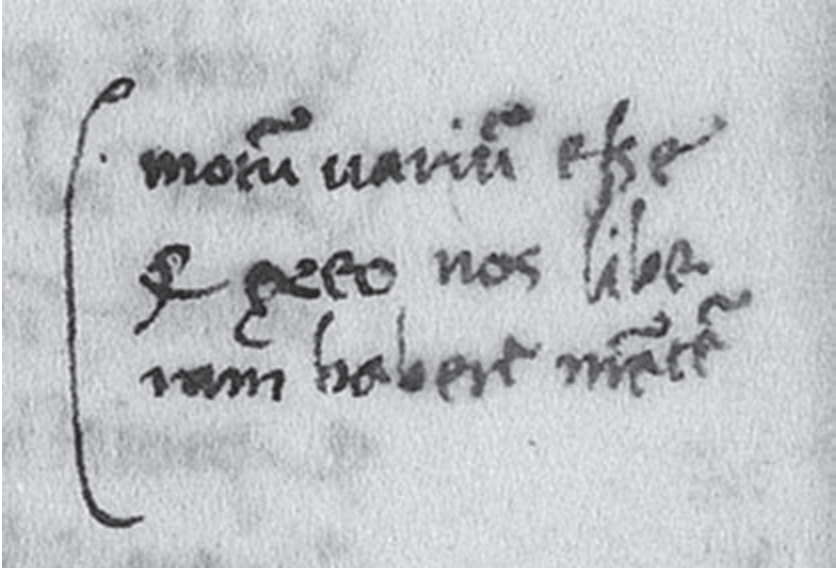 motū uariū eſse
& exeo nos libe
ram habere mētē